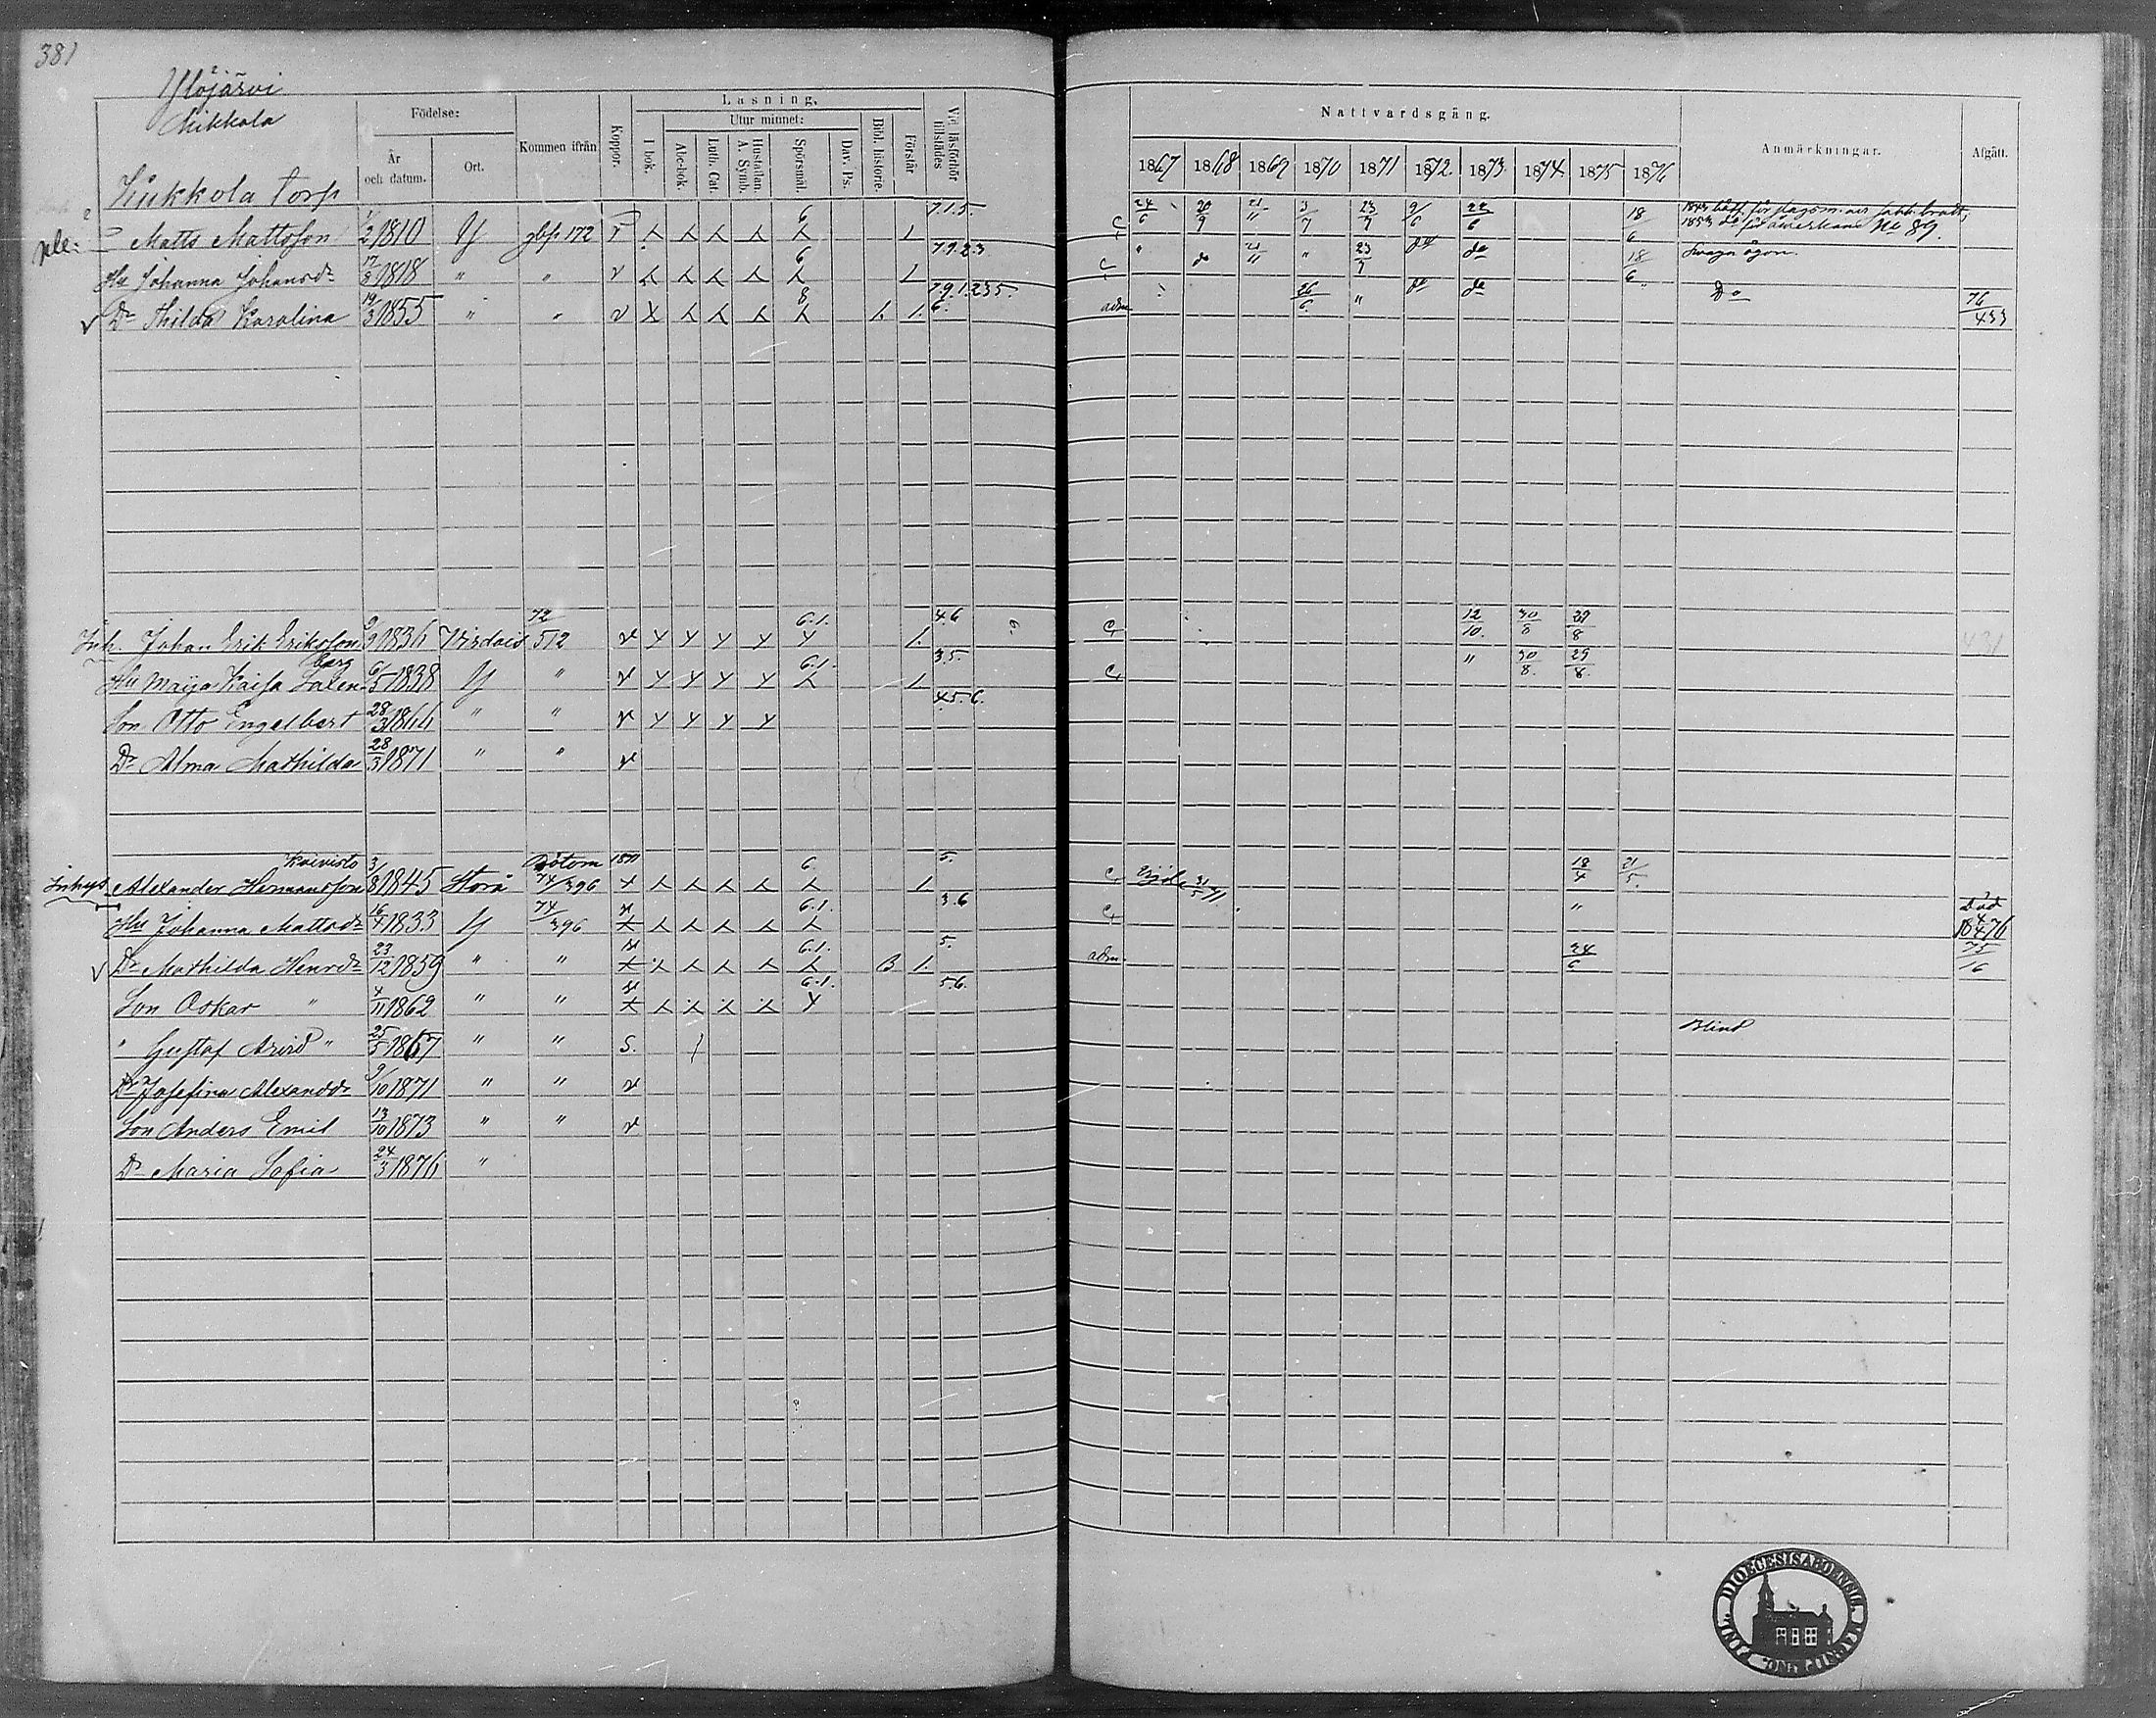 381
Ylöjärvi
Mikkola
Kukkola torp
Födelse:
År och datum.
Ort.
Kommen ifrån
Koppor.
Läsning.
I bok.
Utur minnet:
Abc-bok.
Luth. Cat.
Hustaflan. A. Symb.
Spörsmål.
Dav. Ps.
Bibl. historie.
Förstår
Vid läsförhör tillstädes
Nattvardsgång.
1867 1868 1869 1870 1871 1872. 1873. 1874 1875 1876
Anmärkningar.
Afgått.
Matts Mattsson 1/2 1810 Y gbf. 172 6 1 7.1.5. C 24/6 20/9 21/11 3/7 23/7 9/6 22/6 18/6 No 89.
Hu Johanna Johansdr 17/8 1818 " " v 6 1 7.9.2.3 C " do 21/11 " 23/7 do do 18/6 Swaga ögon.
v Dr Thilda Karolina 19/3 1855 " " v 8 1. 7.9.1.2.3.5. 6. adm 26/6. " do do Do 76/433
Inh. Johan Erik Eriksson 9/9 1836 Virdois 72/512 v y y y y 6.1. y 1. 4.6 C 12/10. 30/8 29/8 431
berg
Hu Maija Kaisa Salen 6/5 1838 Y " v y y y y 6.1. 1 3.5. C " 30/8. 29/8.
Son Otto Engelbert 28/3 1864 " " v y y y y 4.5.6.
Dr Alma Mathilda 28/3 1871 " " v
Koivisto
Inhys Alexander Hermansson 3/8 1845 Storå Bötom 1871 74/396 x 6. 1 5. C 31/5 71. 18/4 21/5.
Hu Johanna Mattsdr 16/4 1833 Y 74/396 6.1. 3.6 C " Död 18 4/4 76
v Dr Mathilda Henrdr 23/12 1859 " " 6.1. B 1. 5. adm. 24/6 75/16
Son Oskar " 4/11 1862 " " 6.1. y 5.6.
" Gustaf Arvid " 25/5 1867 " " S. Blind
Dr Josefina Alexanddr 9/10 1871 " " v
Son Anders Emil 13/10 1873 " " v
Dr Maria Sofia 24/3 1876 "